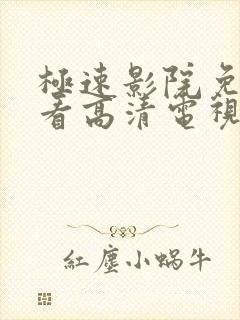 極速影院免
看高清電視
紅塵小蝸牛